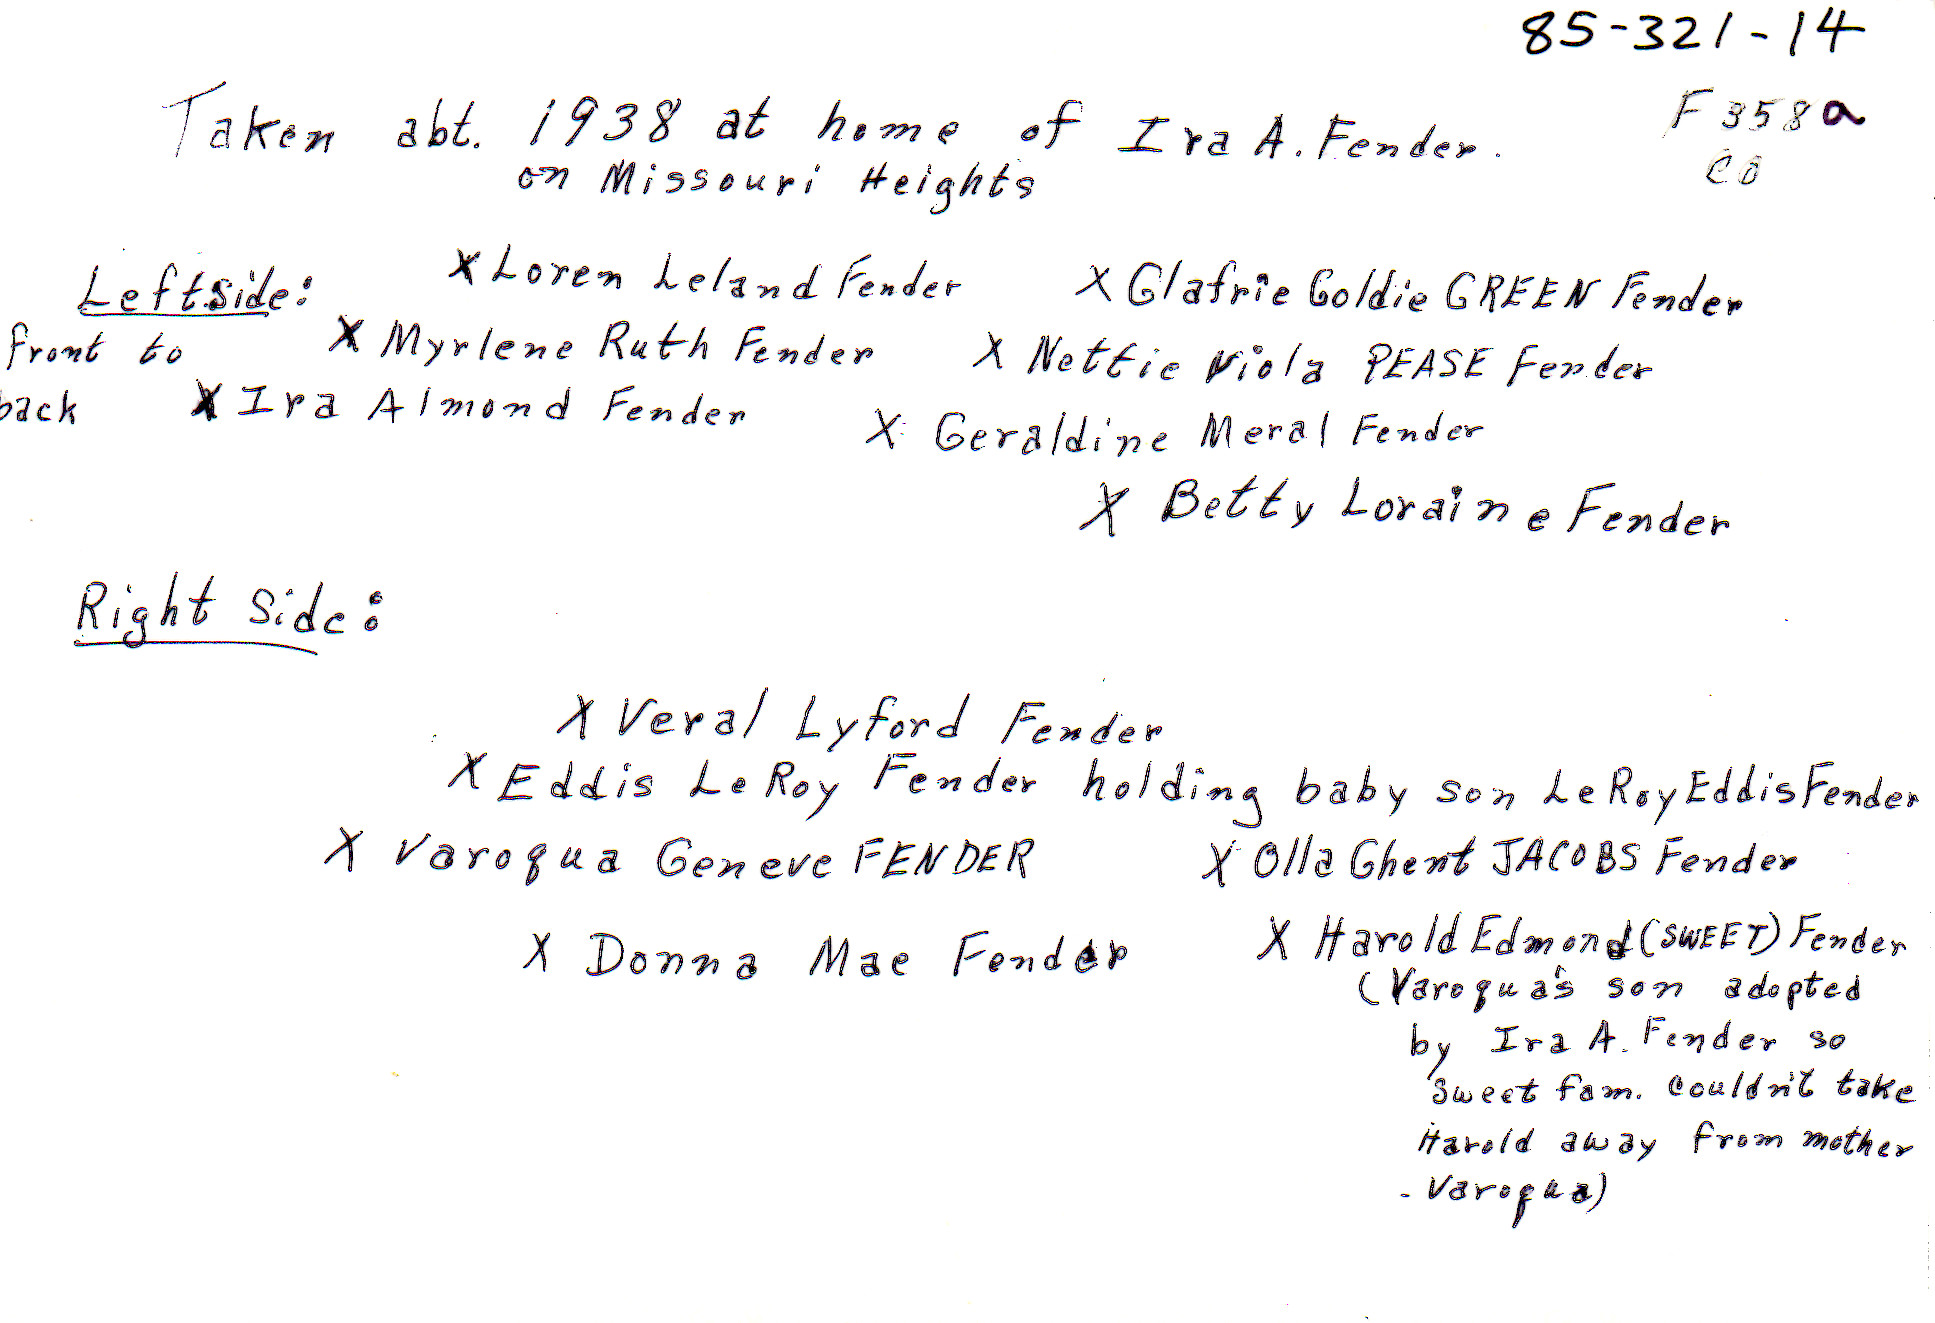 85-321-14
Taken abt. 1938 at home of Ira A. Fender.
F 358a
on Missouri Heights
CO
Leftside: X Loren Leland Fender X Glafrie Goldie GREEN Fender
front to X Myrlene Ruth Fender X Nettie Viola PEASE Fender
back X Ira Almond Fender X Geraldine Meral Fender
X Betty Loraine Fender
Right Side:
X Veral Lyford Fender
X Eddis LeRoy Fender holding baby son LeRoy Eddis Fender
X Varoqua Geneve FENDER X Olla Ghent JACOBS Fender
X Donna Mae Fender X Harold Edmond (SWEET) Fender
(Varoqua's son adopted
by Ira A. Fender so
Sweet fam. couldn't take
Harold away from mother
- Varoqua)